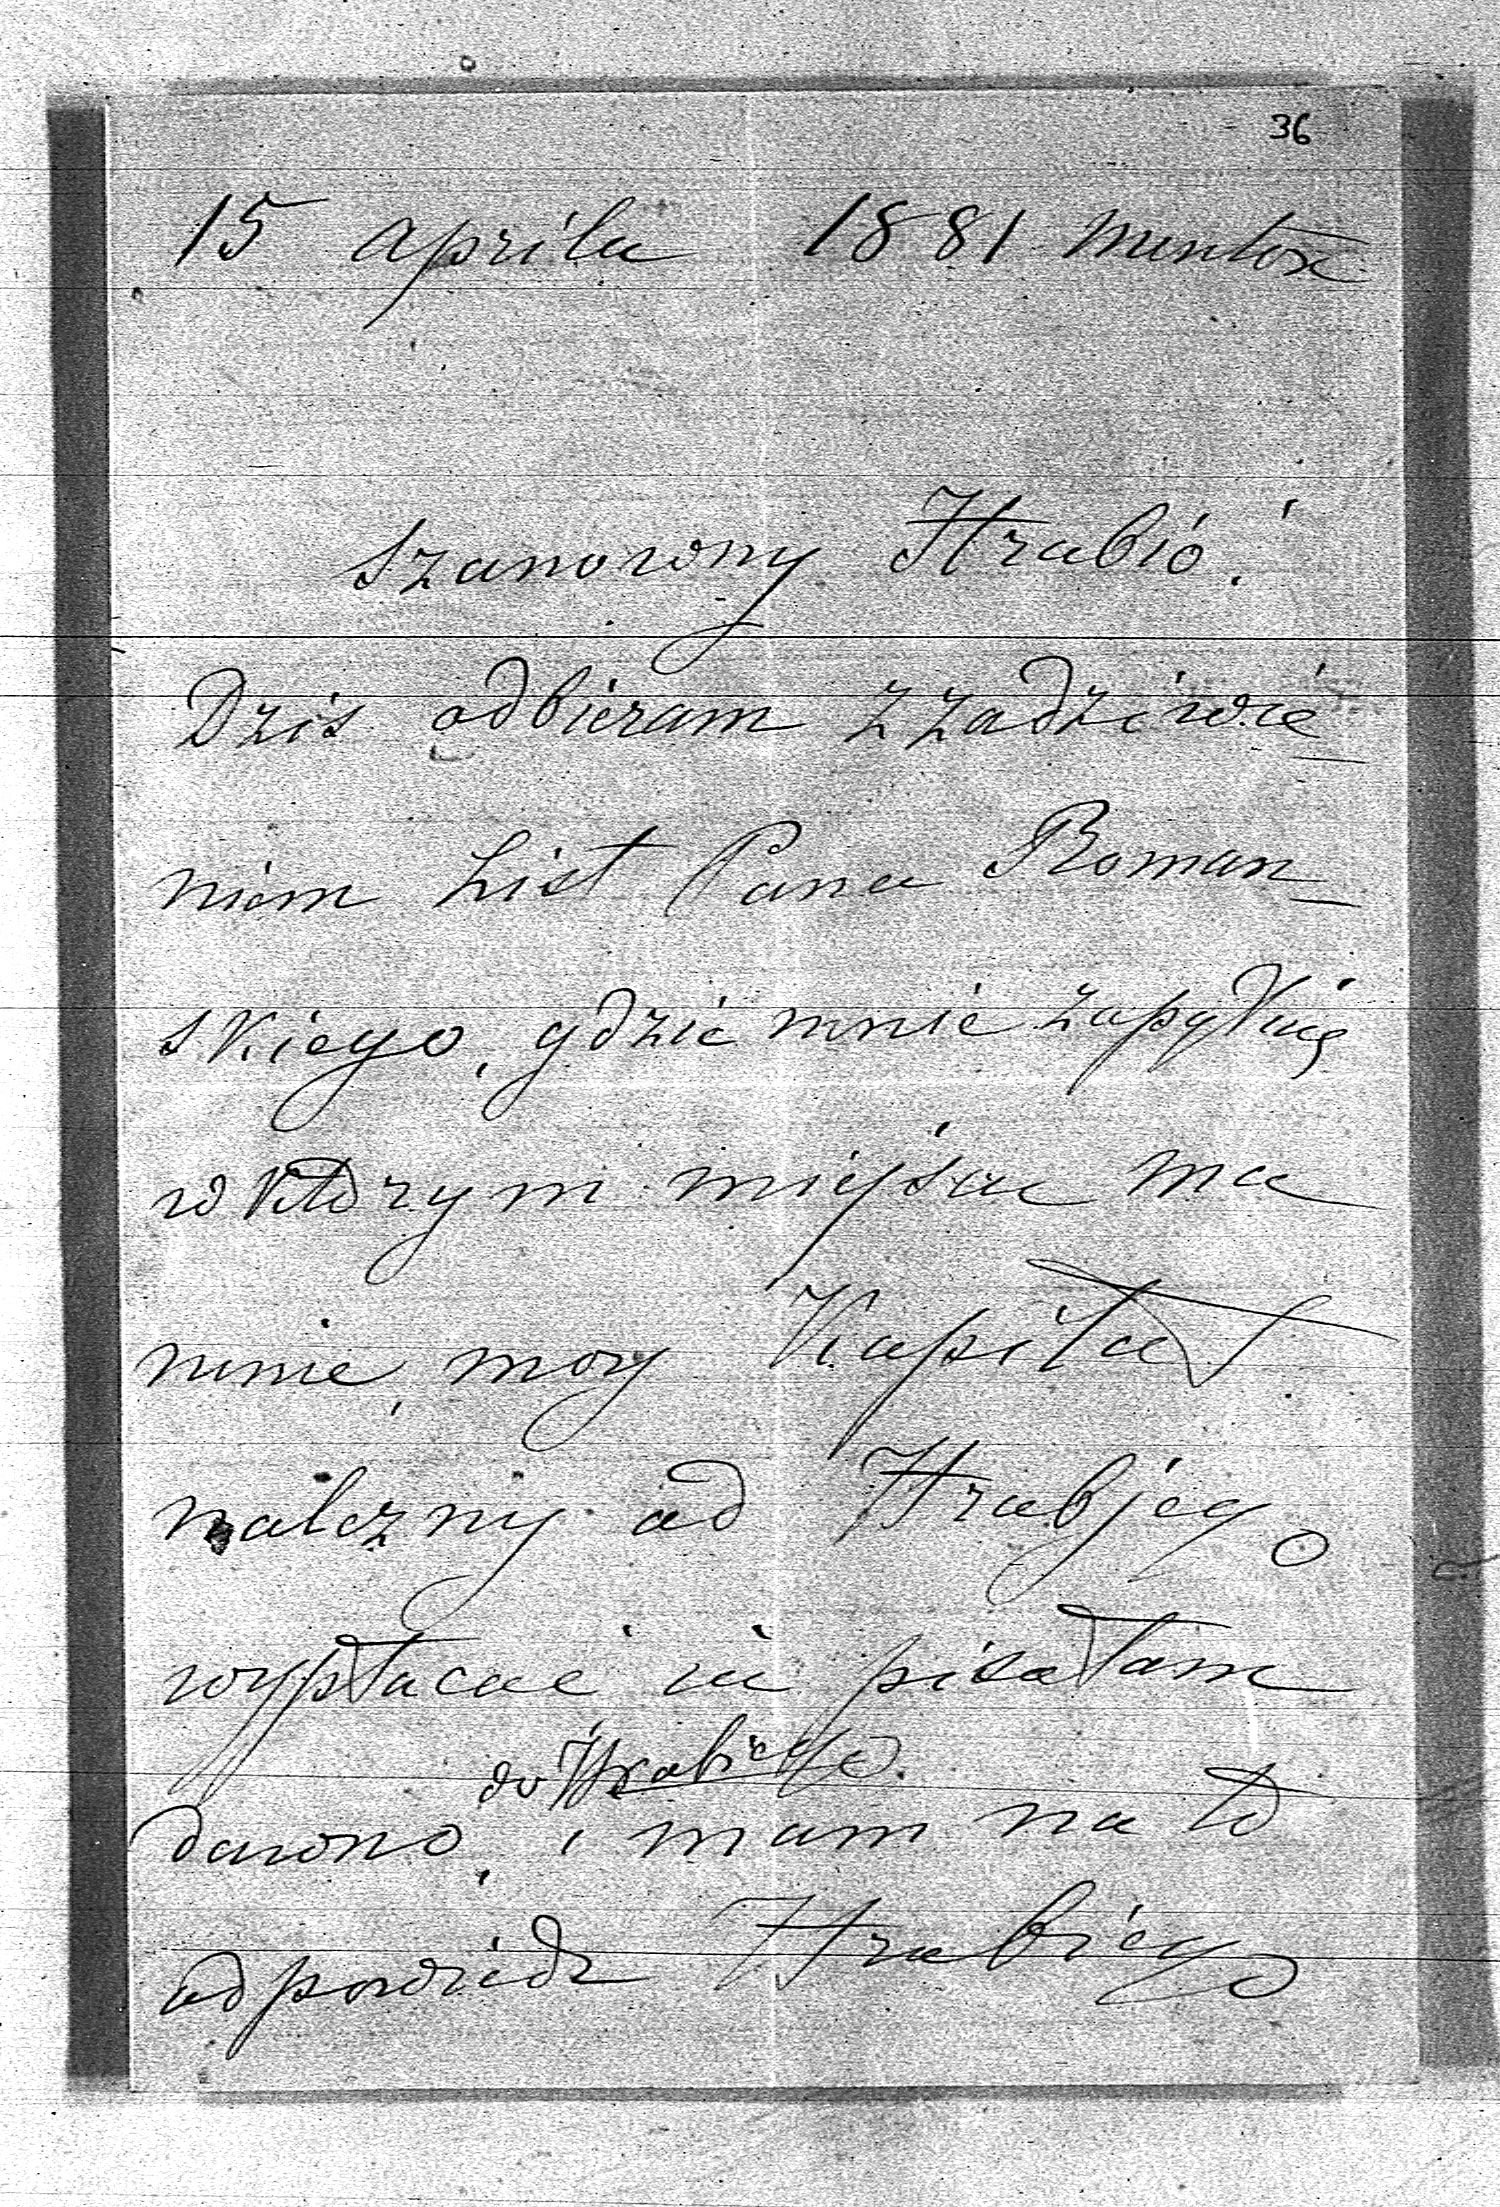 36
15 aprila 1881 Menton
Szanowny Hrabió!
Dzis odbieram z zadziwie_
niem List Pana Roman_
skiego, gdzie mnie zapytuię
w którym miejscu ma
mnie, moy Kapitał
nalezny od Hrabjego
wypłacać
pisałam
do Hrabiego.
dawno, i mam na to
odpowiedz Hrabiego